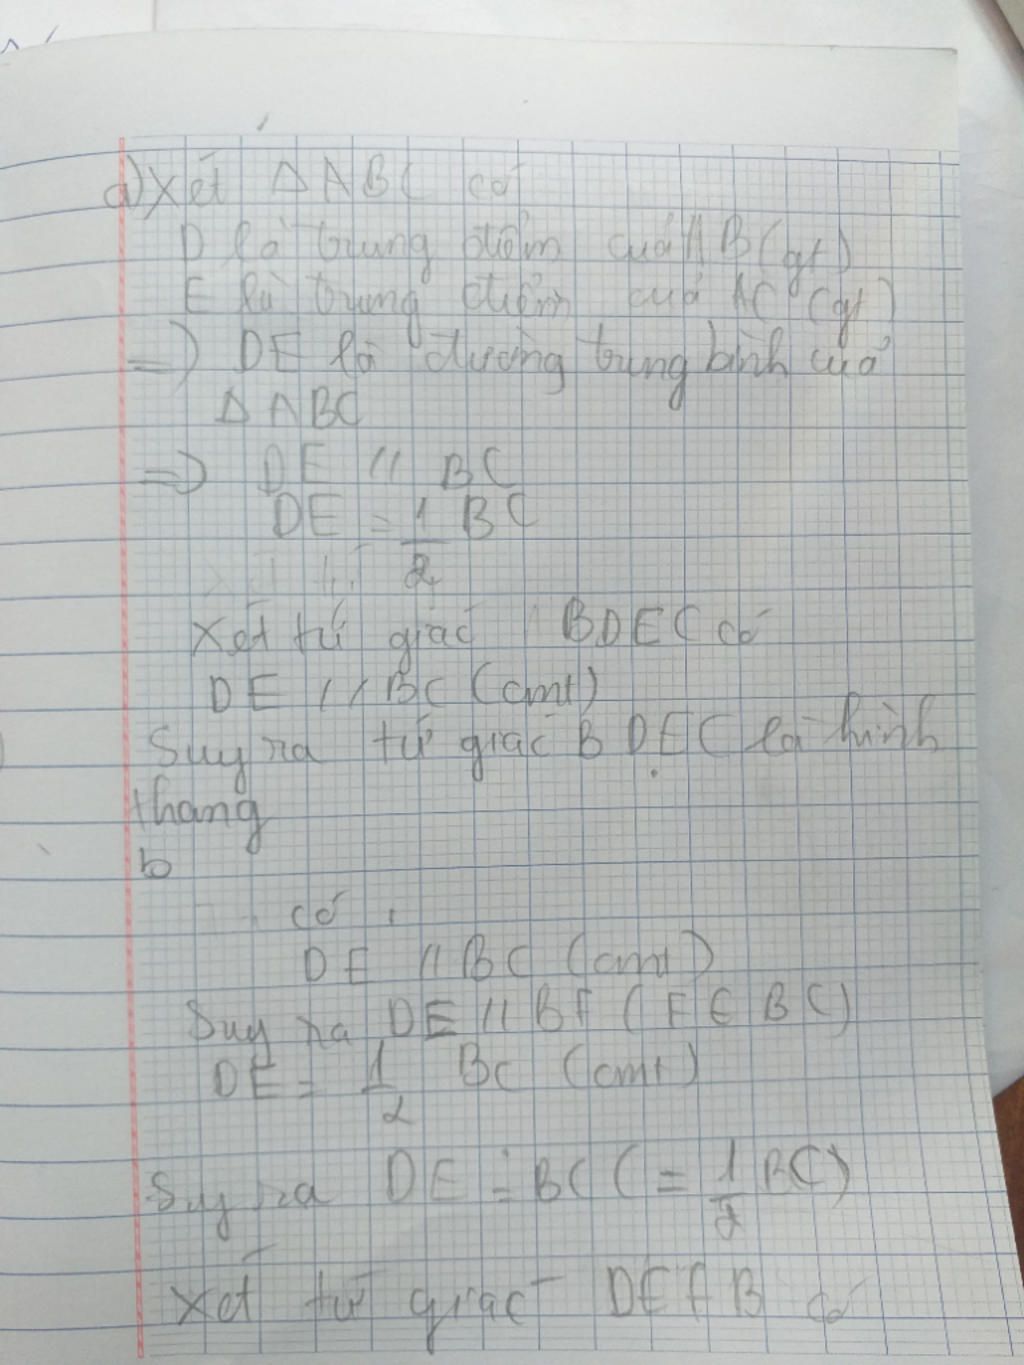 a) Xét Δ ABC có
D là trung điểm của AB (gt)
E là trung điểm của AC (gt)
=> DE là đường trung bình của
Δ ABC
=> DE // BC
DE = 1/2 BC
Xét tứ giác BDEC có
DE // BC (cmt)
Suy ra tứ giác BDEC là hình
thang
b
có
DE // BC (cmt)
Suy ra DE // BF (F ∈ BC)
DE = 1/2 BC (cmt)
Suy ra DE = BC (= 1/2 BC)
Xét tứ giác DEFB có